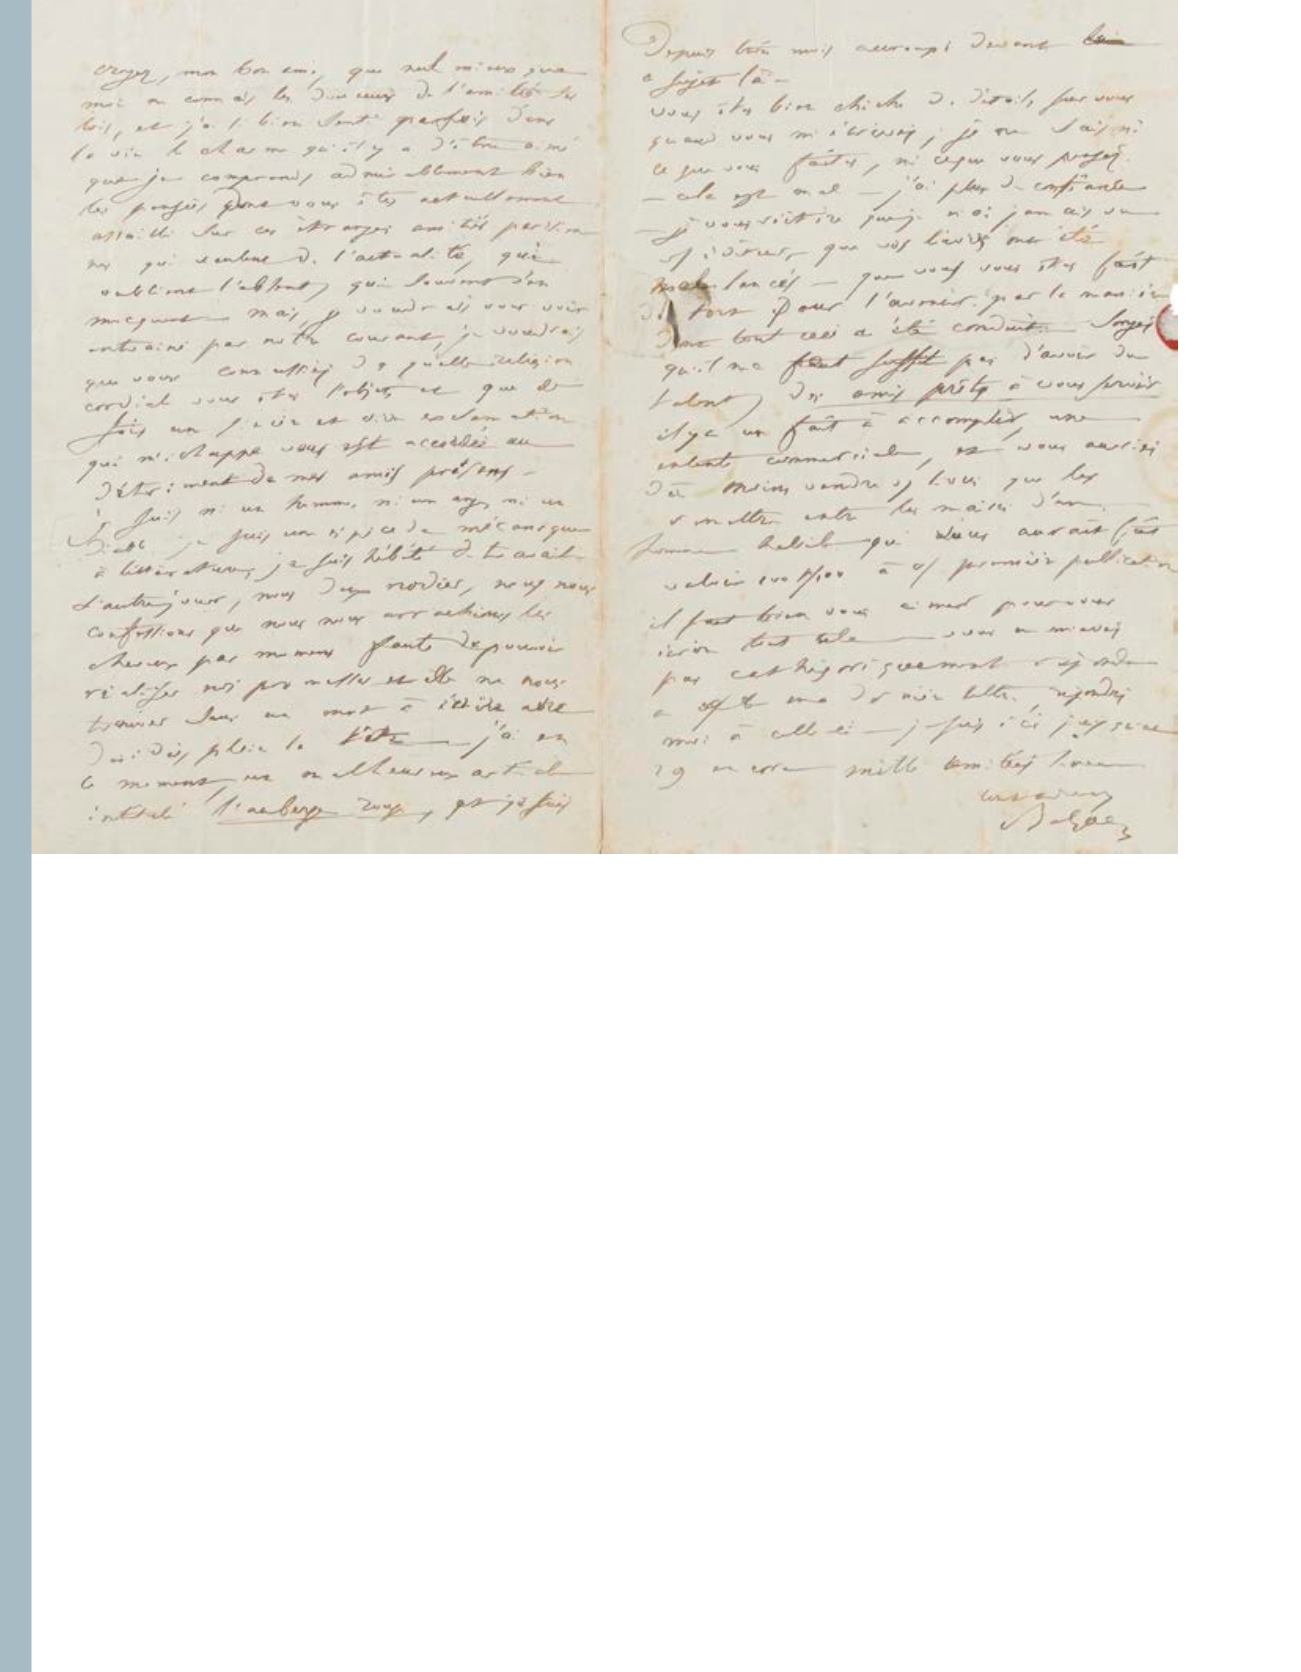 croyez, mon bon ami, que nul mieux que
moi ne connaît les douceurs de l'amitié
et j'ai si bien senti parfois dans
la vie le charme qu'il y a d'être aimé
que je comprends admirablement bien
les pensées dont vous êtes actuellement
assailli sur ces étranges amitiés parisien
nes qui veulent de l'actualité, qui
oublient l'absent, qui souvent s'en
mocquent mais, je voudrais vous voir
entrainé par notre courant, je voudrais
que vous connussiez de quelle religion
cordial vous êtes l'objet et que de
fois un et une exclamation
qui m'échappe vous est accordée au
détriment de mes amis présens -
Je suis ni un homme, ni un ange, ni un
Diable je suis une espèce de mécanique
à littérature, je suis hébété de travail
L'autre jour, nous deux nodier, nous nous
confessions que nous nous arrachions les
cheveux par momens faute de pouvoir
réaliser nos promesses et de ne nous
trouver sans un mot à écrire avec
des idées plein la tête j'ai en
ce moment, un malheureux article
intitulé l'auberge rouge, et je suis
Depuis un mois accroupi devant
ce sujet là -
vous êtes bien chiche de détails sur vous
quand vous m'écrivez; je ne sais ni
ce que vous faites, ni ce que vous pensez.
- cela est mal - j'ai plus de confiance
- je vous réitère que je n'ai jamais vu
que vos livres ont été
mal lancés - que vous vous êtes fait
du tort pour l'avenir par la manière
dont tout ceci a été conduit. Songez
qu'il ne suffit pas d'avoir du
talent, des amis prêts à vous servir
il y a un fait à accomplir, une
entente commerciale, et vous auriez
dû moins vendre vos livres que les
remettre entre les mains d'un
homme habile qui vous aurait fait
valoir à première publication
il faut bien vous aimer pour vous
écrire tout cela vous ne m'avez
pas cathégoriquement répondu
à ma dernière lettre, répondez
moi à celle ci - je suis ici jusqu'au
29 encore mille amitiés
Balzac